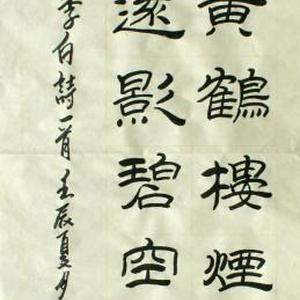 黄鶴樓煙
遠影碧空
李白詩一首壬辰夏月